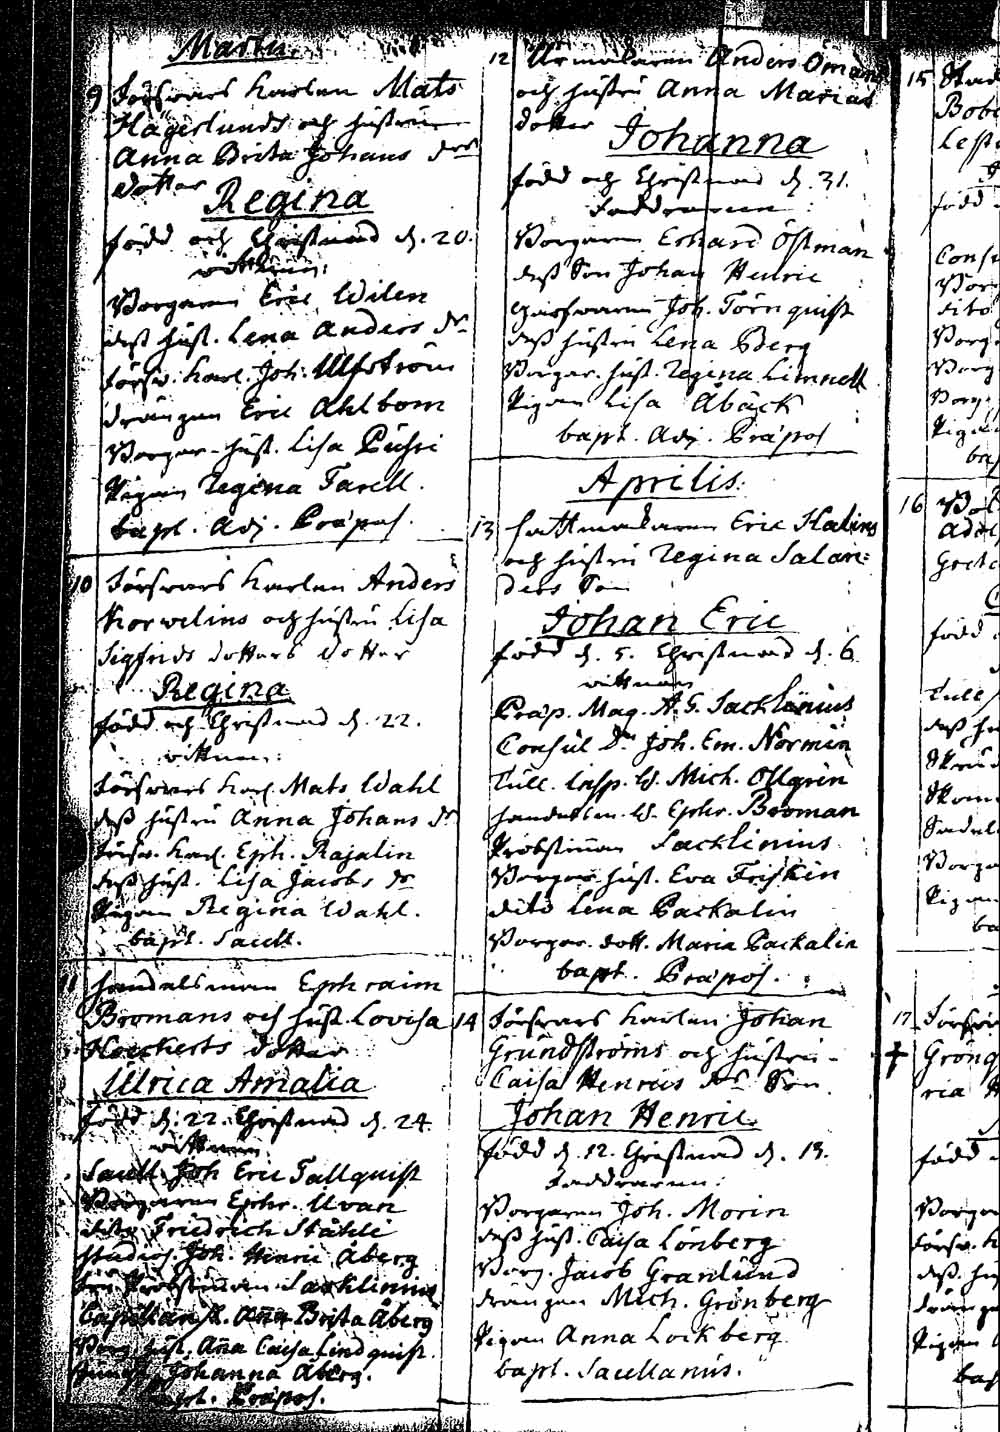 Martii
9 Försvars Karlen Mats
Hägerlunds och hustru
Anna Brita Johans dr
dotter
Regina
född och Christnad d. 20.
vittnen:
Borgaren Eric Widen
dess hust. Lena Anders dr
Försv. Karl. Joh. Ulfström
drängen Eric Ahlbom
Borgar. hust. Lisa
Pigan Regina Farell.
bapt. Adj. Præpos.
10 Försvars Karlen Anders
Korvelins och hustru Lisa
Sigfrids dotters dotter
Regina
född och Christnad d. 22.
vittnen:
Försvars Karl. Mats Wahl
dess hustru Anna Johans dr
Försv. Karl. Eph. Rajalin
dess hust. Lisa Jacobs dr
Pigan Regina Wahl.
bapt. Sacell.
11 Handelsman Ephraim
Bromans och hust. Lovisa
Hoeckerts dotter
Ulrica Amalia
född d. 22. Christnad d. 24
vittnen
Sacell. Joh Eric Tallquist
Borgaren Ephr. Uvan
dito Friedrich Stähle
Studios. Joh. Henric Åberg
Probstinnan Sacklinius
Anna Brita Åberg
Borg. hust. Aña Caisa Lindquist.
Johanna Åberg.
bapt. Præpos.
12 Urmakaren Anders Ömans
och hustru Anna Marias
dotter
Johanna
född och Christnad d. 31.
Faddrarna
Borgaren Erhard Östman
dess Son Johan Henric
Garfvaren Joh. Törnquist
dess hustru Lena Berg
Borgar. hust. Regina Limnell
Pigan Lisa Åbäck
bapt. Adj. Præpos
Aprilis.
13 Hattmakaren Eric Halins
och hustru Regina Salan=
ders Son
Johan Eric
född d. 5. Christnad d. 6
vittnen
Præp. Mag. A. G. Sacklinius
Consul Dn Joh. Em. Normén
Tull. Insp. W. Mich. Ollgrén
Handelsm. W. Ephr. Broman
Probstinnan Sacklinius
Borgar hust. Eva Friskin
dito Lena Packalin
Borgar. dott. Maria Packalin
bapt. Præpos.
14 Försvars Karlen Johan
Grundströms och hustru
Caisa Henrics drs Son
Johan Henric.
född d. 12. Christnad d. 13.
Faddrarna:
Borgaren Joh. Morin
dess hust. Caisa Lönberg
Borg. Jacob Granlund
drängen Mich. Grönberg
Pigan Anna Lockberg
bapt. Sacellanus.
15
Bobe
född
dito
Borg
Borg
Borg
Pigan
16
född
Tull
dess hu
Borga
Pigan
ba
17 Försva
† Grönq
ria H
född
Borgar
Försv. K
dess hu
dränge
Pigan
bap